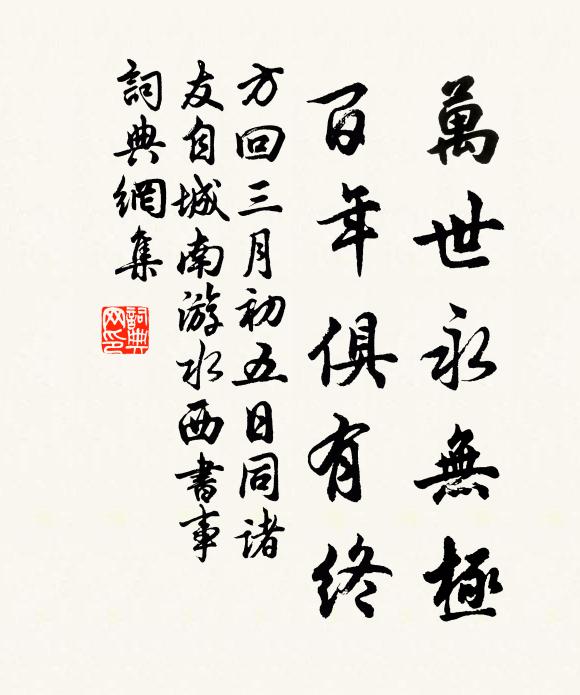 萬世永無極
百年俱有終
方回三月初五日同諸
友自城南游水西書事
詞典網集
詞典
网印